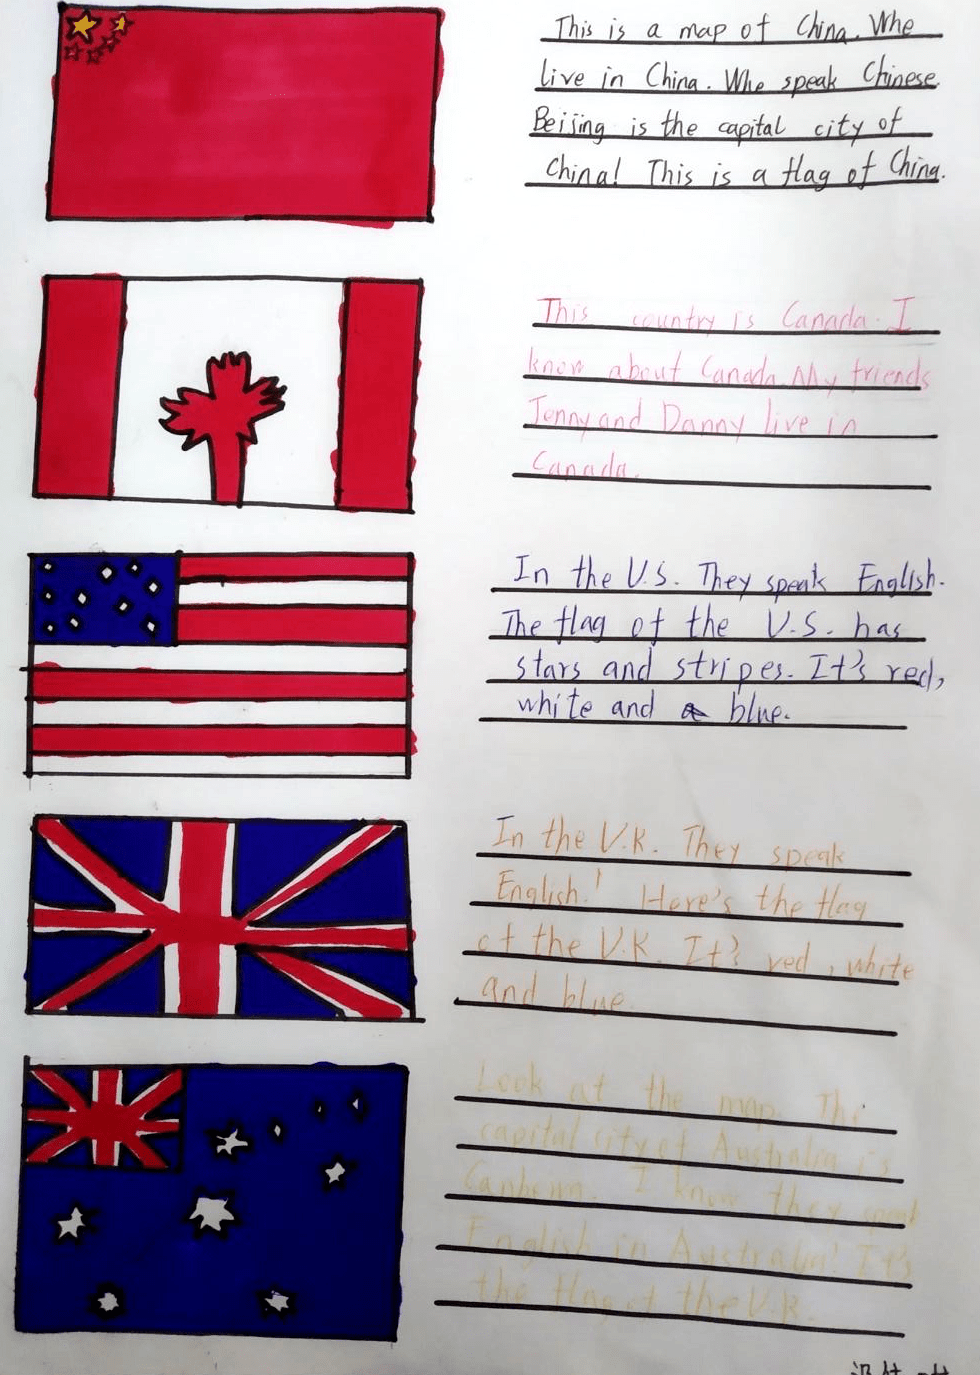 This is a map of China. Whe
live in China. Whe speak Chinese.
Beijing is the capital city of
China! This is a flag of China.
This country is Canada. I
know about Canada. My friends
Jenny and Danny live in
Canada.
In the U.S. They speak English.
The flag of the U.S. has
stars and stripes. It's red,
white and blue.
In the U.K. They speak
English! Here's the flag
of the U.K. It's red, white
and blue.
Look at the map. The
capital city of Australia is
Canberra. I know they speak
English in Australia! It's
the flag of the U.K.